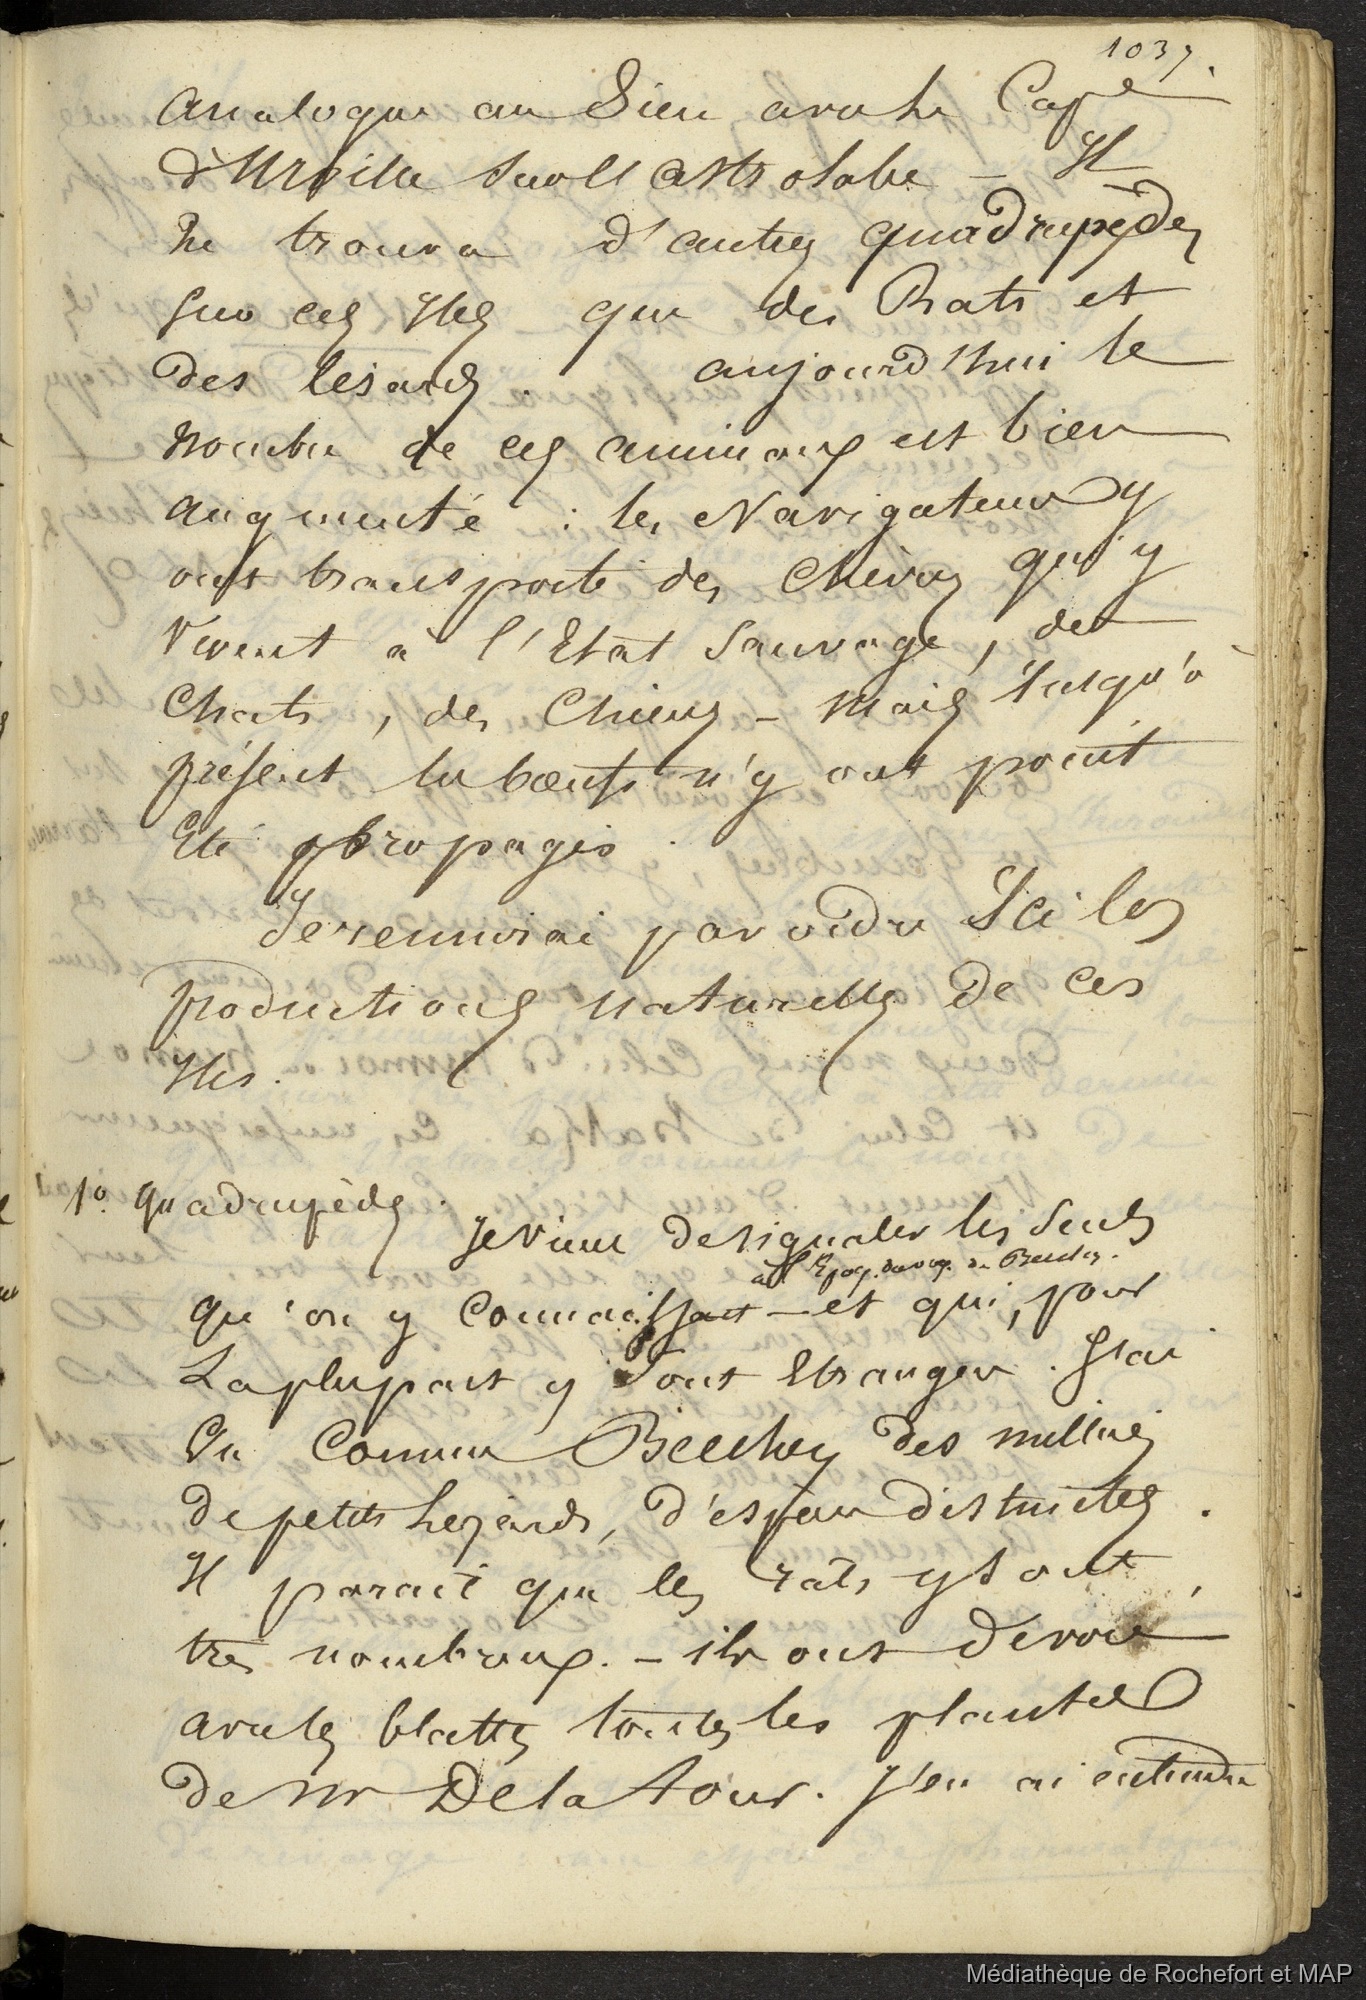 1037.
analogue au Sien avec le Cape
d'Urville Sur l'Astrolabe – Il
ne trouva d'autres quadrupèdes
Sur ces Iles que des Rats et
des lésards. aujourd'hui le
nombre de ces animaux est bien
augmenté : les Navigateurs y
ont transporté des Chèvres qui y
vivent à l'Etat Sauvage, des
Chats, des Chiens – Mais Jusqu'à
présent les boeufs n'y ont point
Eté propagés.
Je réunirai par ordre Ici les
productions naturelles de ces
Iles.
1o. Quadrupèdes.
Je viens de signaler les Seuls
à l'Epoq. du voy. de Beechey.
qu'on y Connaissait – et qui, pour
La plupart y Sont Etrangers. J'ai
Vu Comme Beechey des milliers
de petits Lezards, d'espèces distinctes.
Il parait que les rats y sont
très nombreux. – ils ont dévoré
avec les blattes toutes les plantes
de Mr De la tour. J'en ai entendu
Médiathèque de Rochefort et MAP